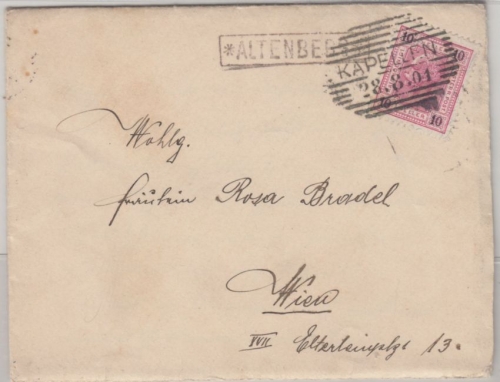 *ALTENBERG
KAPELLEN
28.8.04
10 10
10 10
Wohlg.
Fräulein Rosa Bradel
Wien
XVII Elterleinplatz 13.